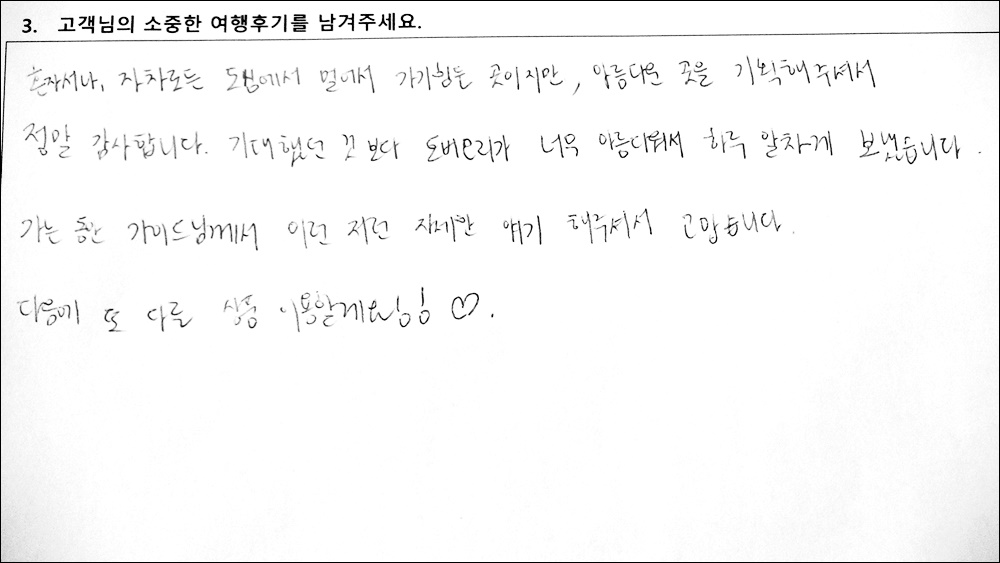 3. 고객님의 소중한 여행후기를 남겨주세요.
혼자서나, 자차로든 도심에서 멀어서 가기힘든 곳이지만, 아름다운 곳을 기획해주셔서
정말 감사합니다. 기대했던 것 보다 도버오리가 너무 아름다워서 하루 알차게 보냈습니다.
가는 동안 가이드님께서 이런 저런 자세한 얘기 해주셔서 고맙습니다.
다음에 또 다른 상품 이용할게요!! ♡.